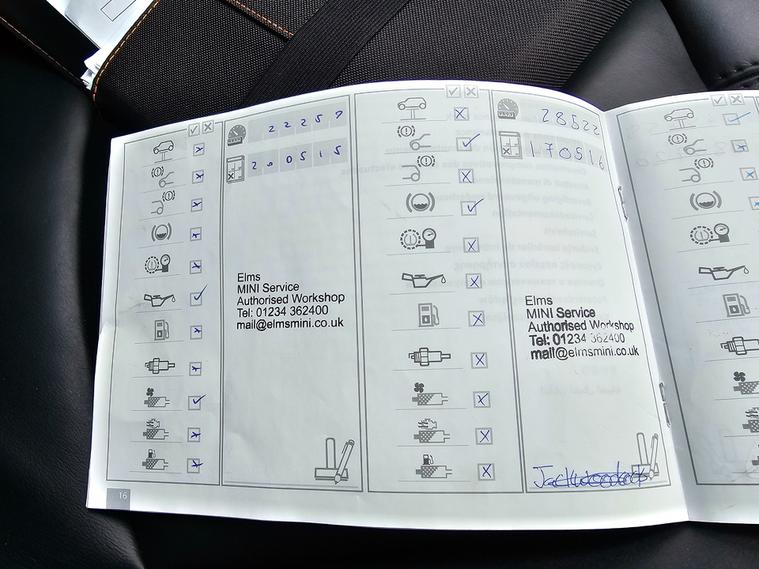 22257
200515
Elms
MINI Service
Authorised Workshop
Tel: 01234 362400
mail@elmsmini.co.uk
16
28522
170516
Elms
MINI Service
Authorised Workshop
Tel: 01234 362400
mail@elmsmini.co.uk